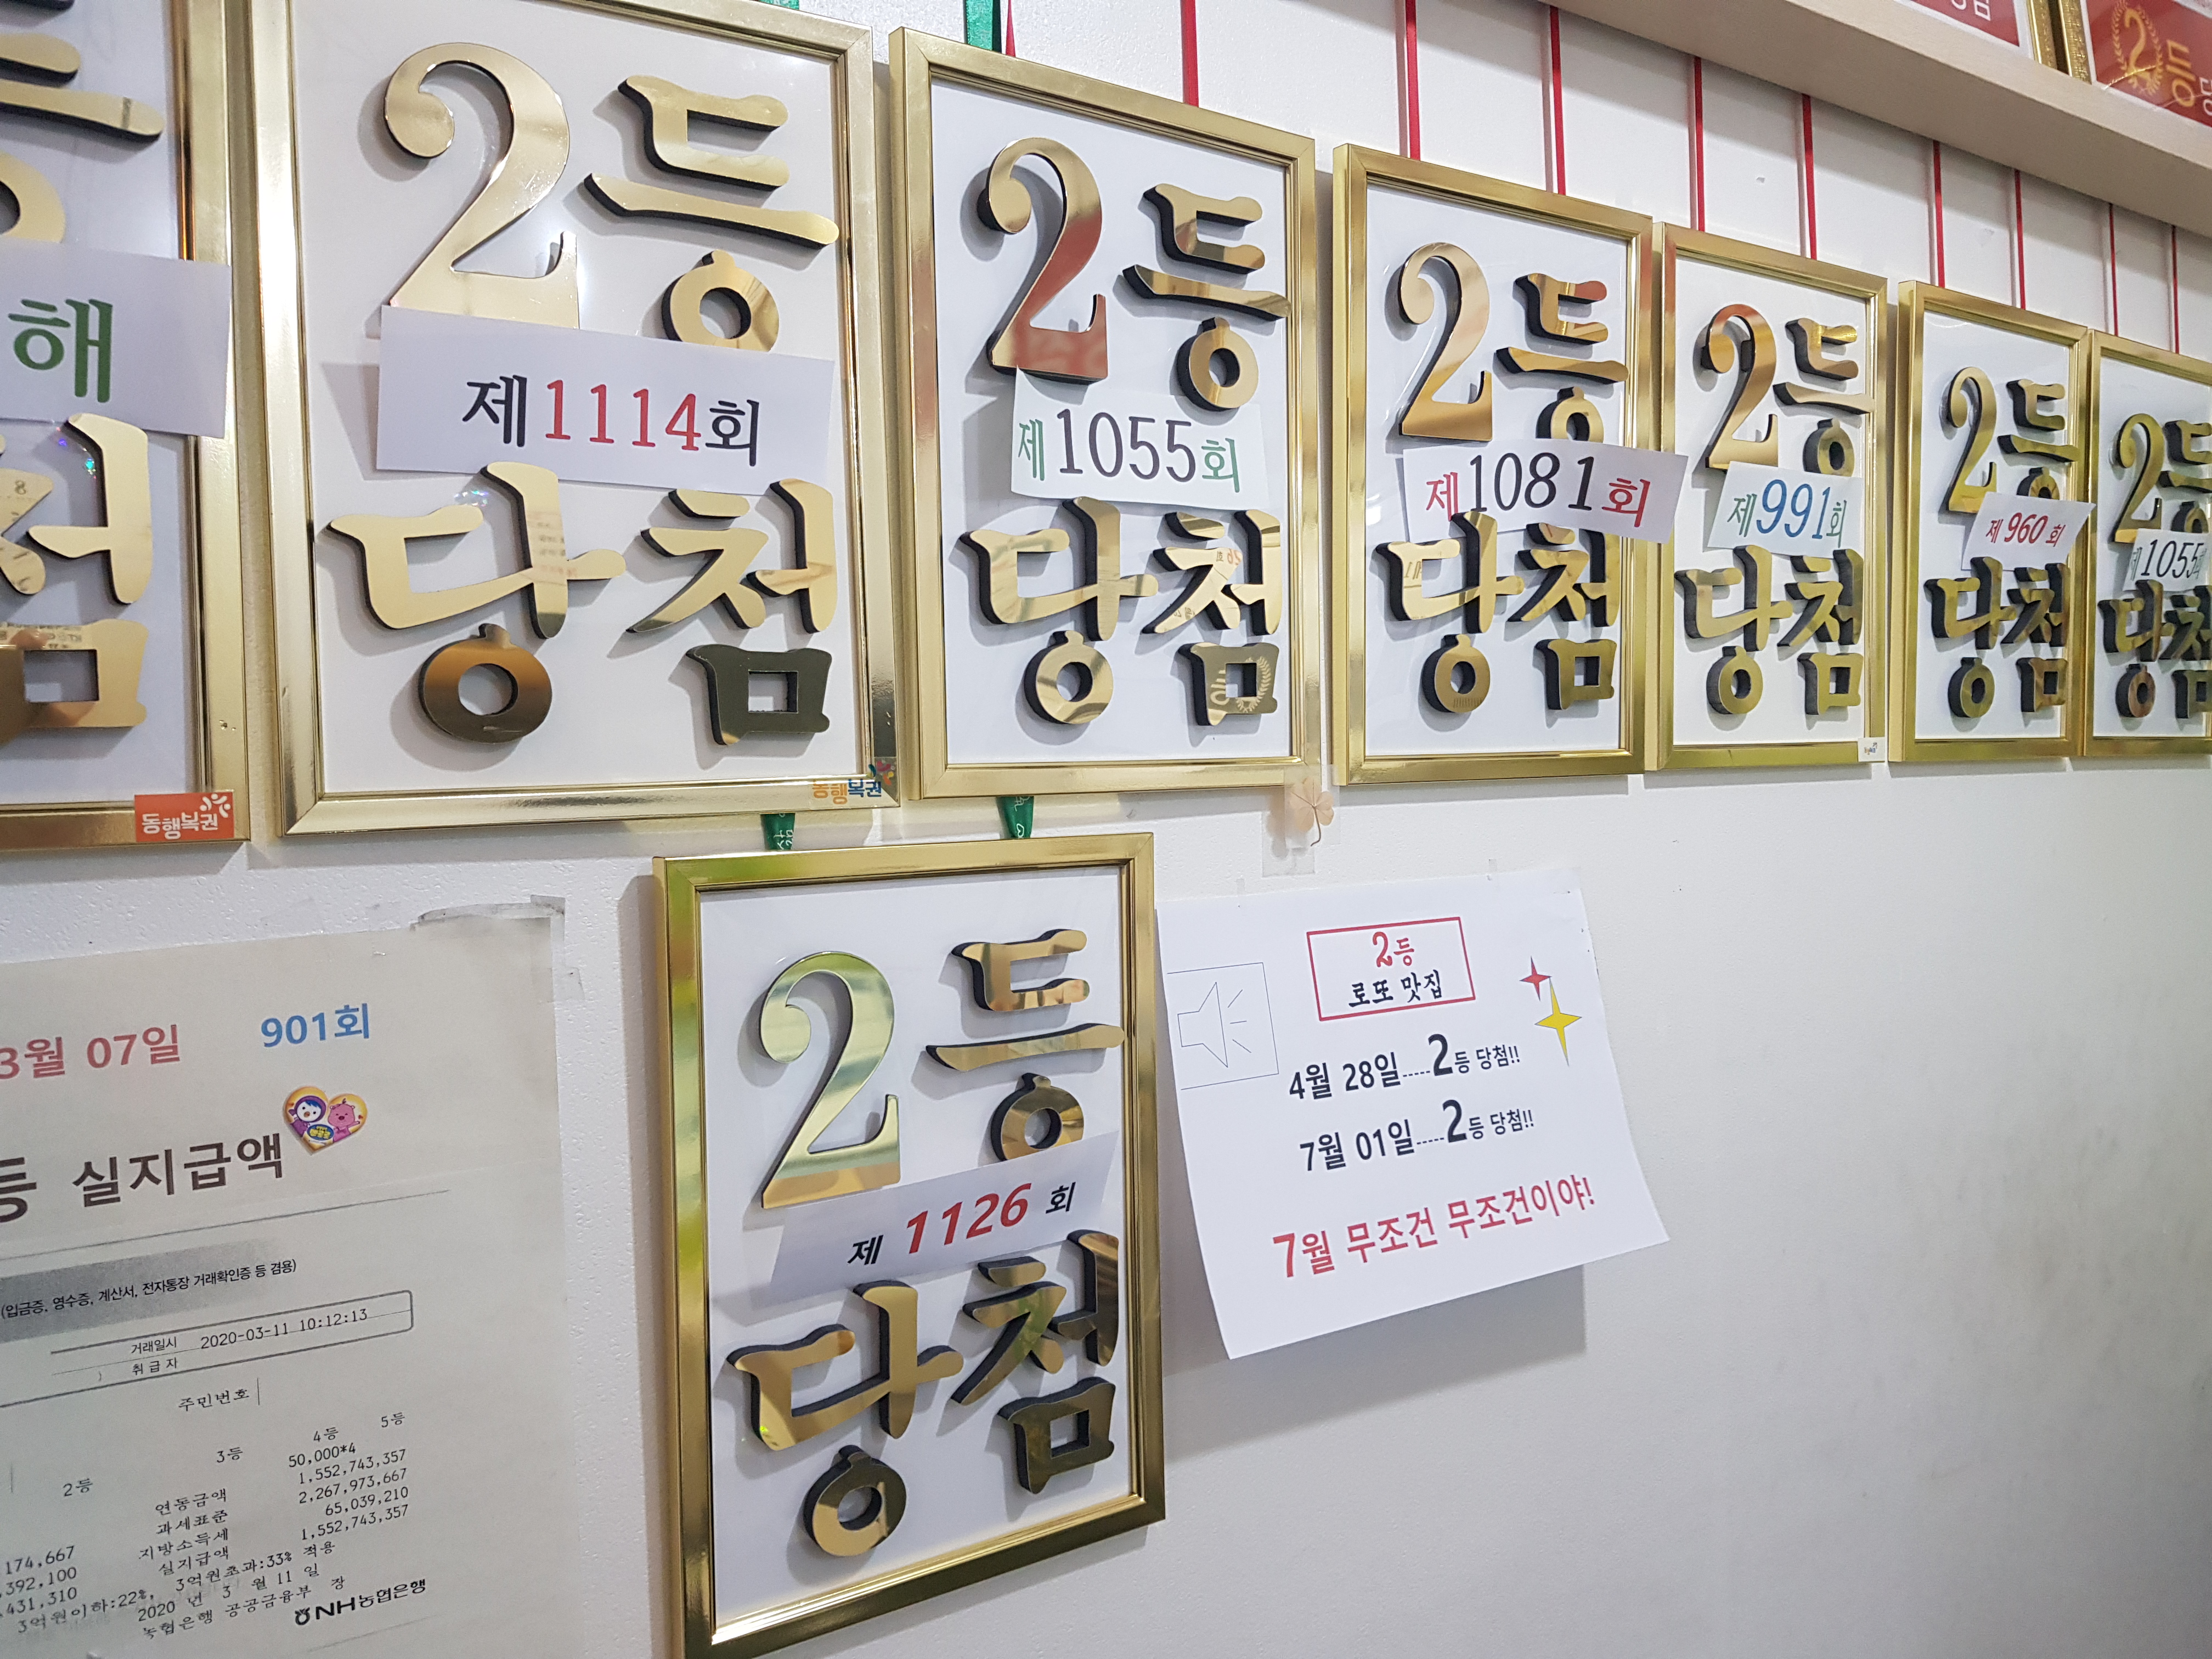 해
동행복권
2등
제1114회
당첨
동행복권
2등
제1055회
당첨
2등
제1081회
당첨
2등
제991회
당첨
2등
제960회
당첨
2등
1055
당첨
2등
3월 07일 901회
등 실지급액
(입금증, 영수증, 계산서, 전자통장 거래확인증 등 겸용)
거래일시 2020-03-11 10:12:13
취급자
주민번호
2등 3등 4등 5등
50,000*4
연동금액 1,552,743,357
과세표준 2,267,973,667
지방소득세 65,039,210
실지급액 1,552,743,357
174,667
392,100
431,310
3억원이하:22%, 3억원초과:33% 적용
2020 년 3 월 11 일
농협은행 공공금융부 장
NH농협은행
2등
제 1126 회
당첨
2등
로또 맛집
4월 28일.....2등 당첨!!
7월 01일.....2등 당첨!!
7월 무조건 무조건이야!